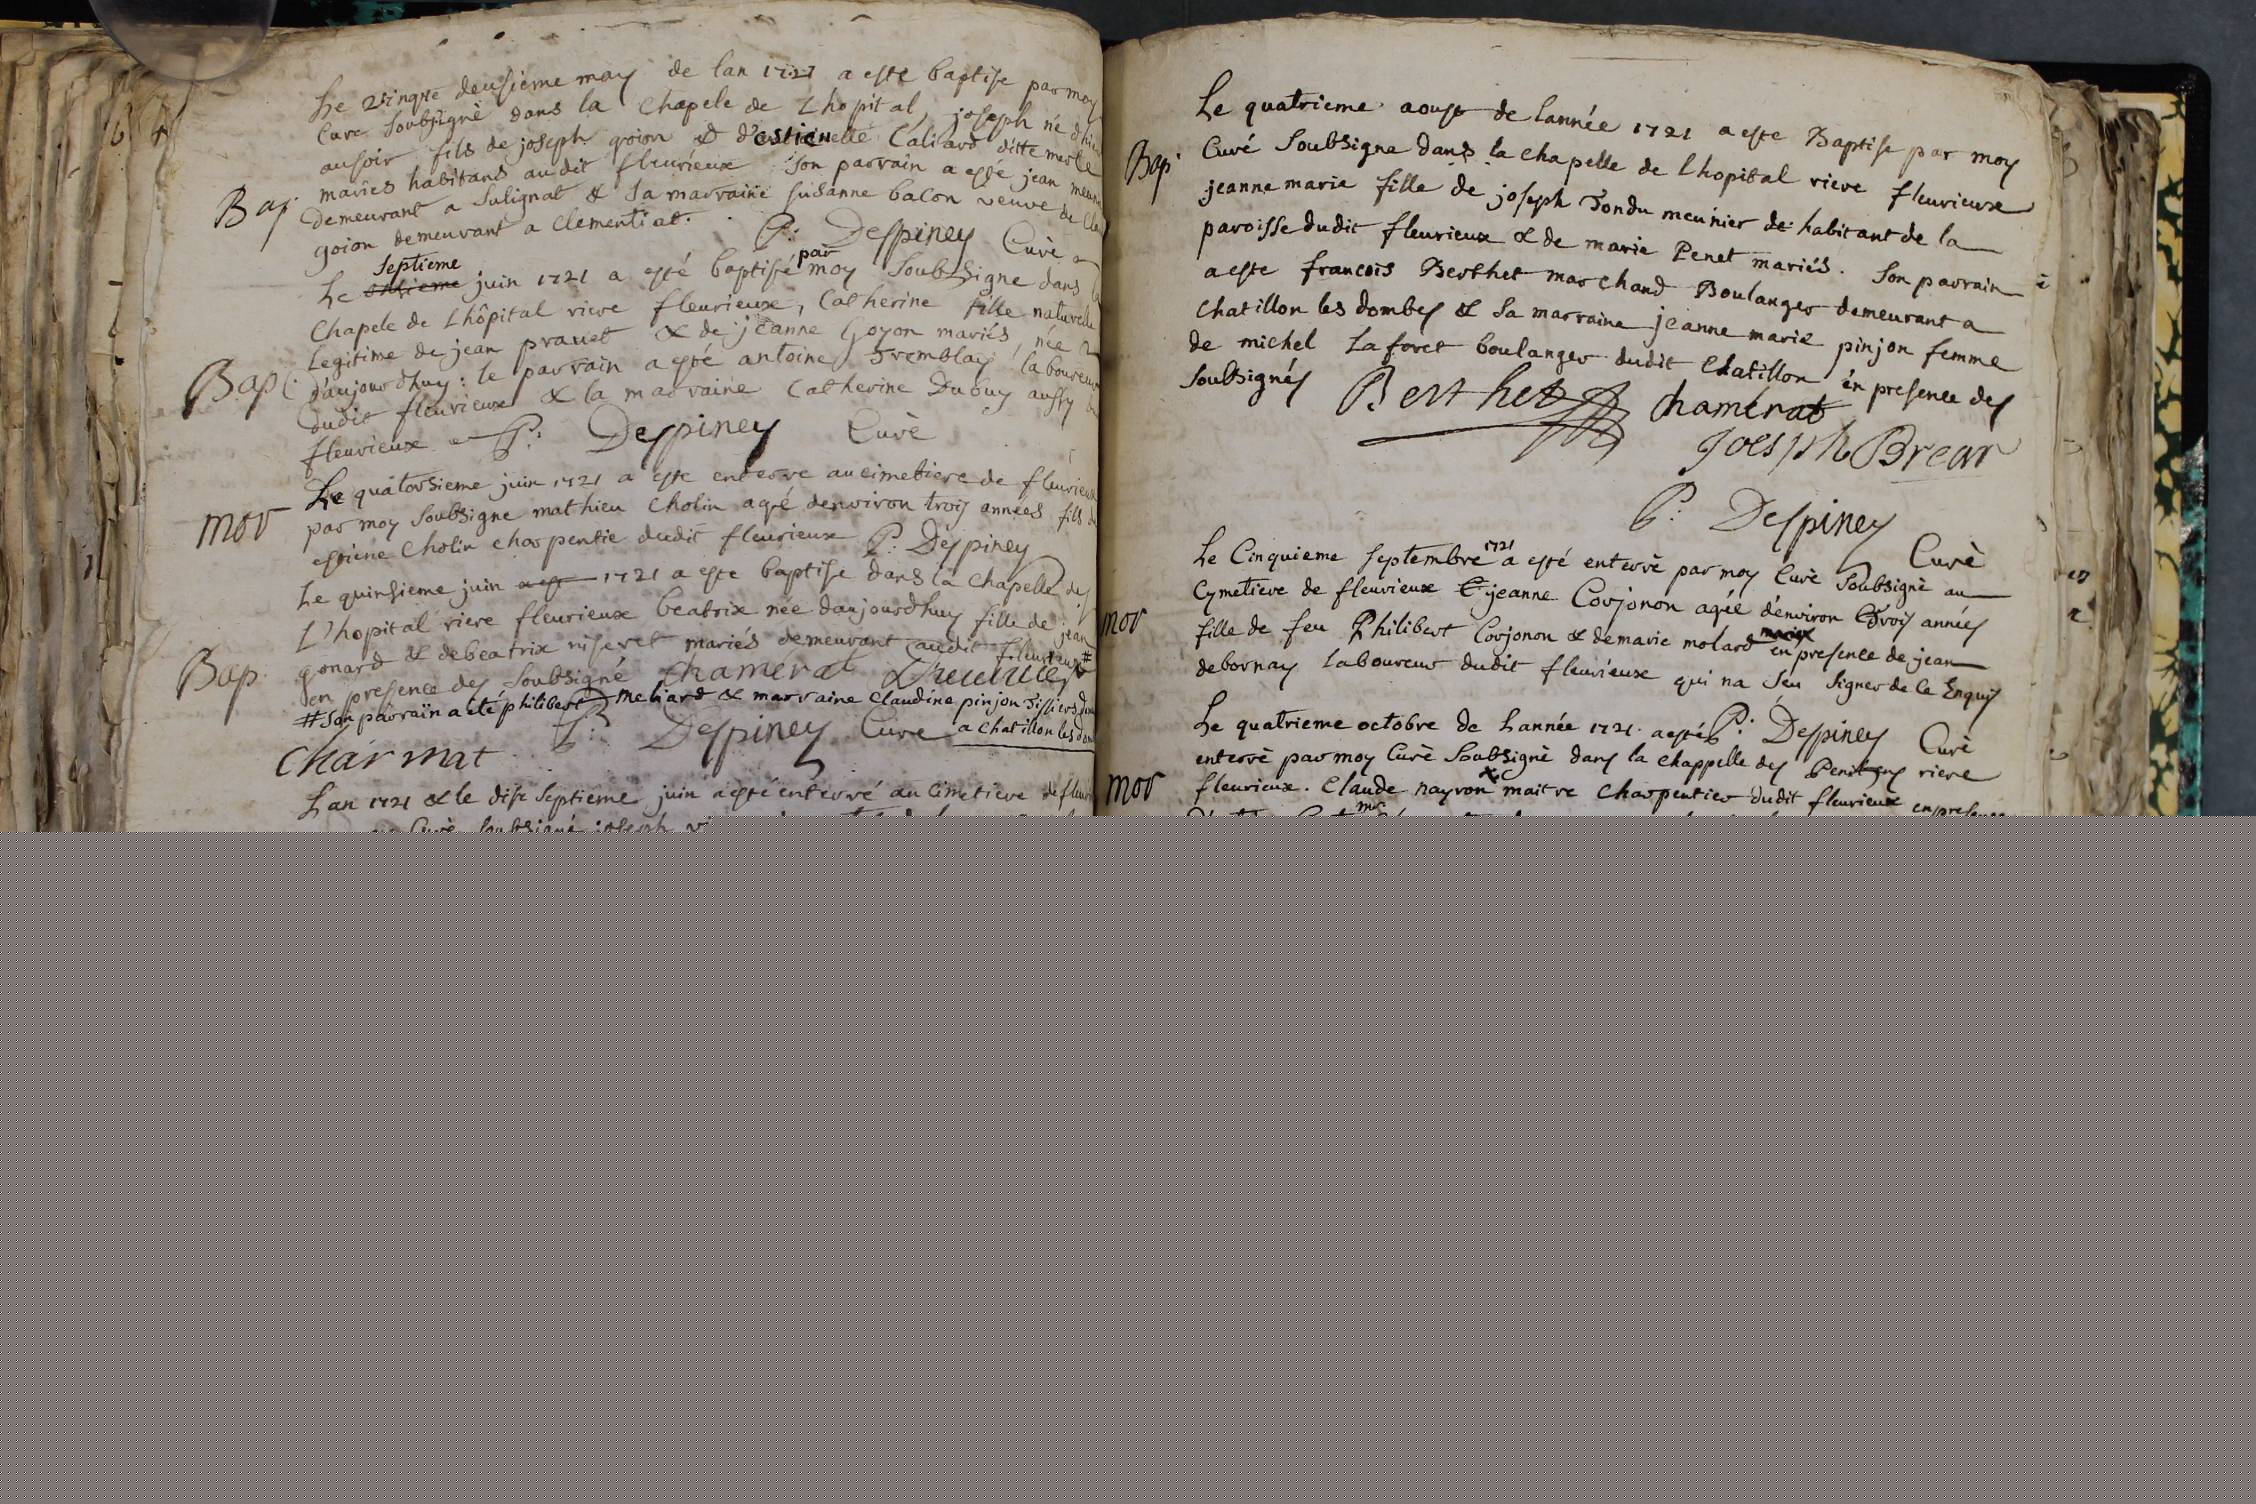 Le vingtre deusieme may de lan 1721 a esté baptise par moy
Curé soubsigné dans la Chapele de Lhopital, joseph né d'hier
au soir fils de joseph goion & d'estiennette Caliard ditte merle
mariés habitans audit fleurieux son parrain a esté jean
Bap.
demeurant a Sulignat & sa marraine susanne balon veuve de
goion demeurant a Clementiat.
P: Despiney Curé
septieme
par
Le onsieme juin 1721 a esté baptisé moy soubsigne dans la
Chapele de Lhôpital riere fleurieux, Catherine fille naturelle
Legitime de jean pravet & de jeanne Goyon mariés, née
Bap:
d'aujourdhuy: le parrain a esté antoine Tremblay laboureur
dudit fleurieux & la marraine Catherine Dubuy aussy
fleurieux P: Despiney Curé
Le quatorsieme juin 1721 a este enterre au cimetiere de fleurieux
mor
par moy soubsigne mathieu Cholin agé denviron trois années fils de
estiene Cholin charpentie dudit fleurieux P: Despiney
Le quinsieme juin a est 1721 a este baptise dans la Chapelle de
L'hopital riere fleurieux beatrix née daujourdhuy fille de jean
Bap.
gonard & de beatrix niseret mariés demeurant audit fleurieux #
en presence des soubsigné Chamerat
# son parrain a eté philibert meliard & marraine Claudine pinjon
P: Despiney Curé a Chatillon les
Charmat
Lan 1721 & le dise septieme juin a esté enterré au Cimetiere de
Curé soubsigné joseph
Le quatrieme aoust de lannée 1721 a este Baptise par moy
Bap.
Curé Soubsigne dans la chapelle de Lhopital riere fleurieux
jeanne marie fille de joseph Tondu meunier de habitant de la
paroisse dudit fleurieux & de marie Penet mariés. Son parrain
a este francois Berthet marchand Boulanger demeurant a
Chatillon les dombes & sa marraine jeanne marie pinjon femme
de michel Laforet boulanger dudit Chatillon en presence des
soubsignés Berthet Chamerat
Joesph Brear
P: Despiney Curé
1721
Le Cinquieme septembre a esté enterré par moy Curé soubsigné au
Cymetiere de fleurieux jeanne Corjonon agée denviron trois années
mor
fille de feu Philibert Corjonon & de marie molard en presence de jean
debornay Laboureur dudit fleurieux qui na seu signer de ce Enquis
P: Despiney Curé
Le quatrieme octobre de Lannée 1721. a esté
enterré par moy Curé soubsigné dans la chappelle des Penitens riere
mor
fleurieux. Claude nayron maitre Charpentier dudit fleurieux en presence